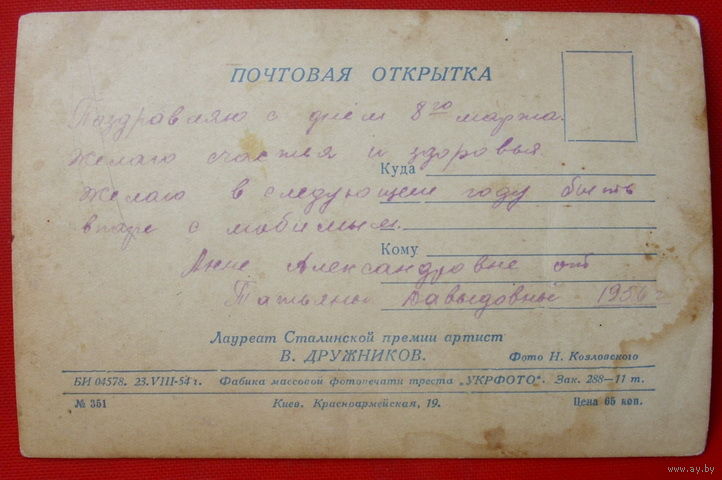 ПОЧТОВАЯ ОТКРЫТКА
Паздравляю с днём 8го марта.
желаю счастья и здоровья.
Куда
желаю в следующем году быть
в паре с любимым.
Кому
Анне Александровне от
Татьяны Давыдовны 1956 г
Лауреат Сталинской премии артист
В. ДРУЖНИКОВ.
Фото Н. Козловского
БИ 04578. 23.VIII-54 г. Фабика массовой фотопечати треста „УКРФОТО". Зак. 288—11 т.
№ 351 Киев. Красноармейская, 19. Цена 65 коп.
www.ay.by